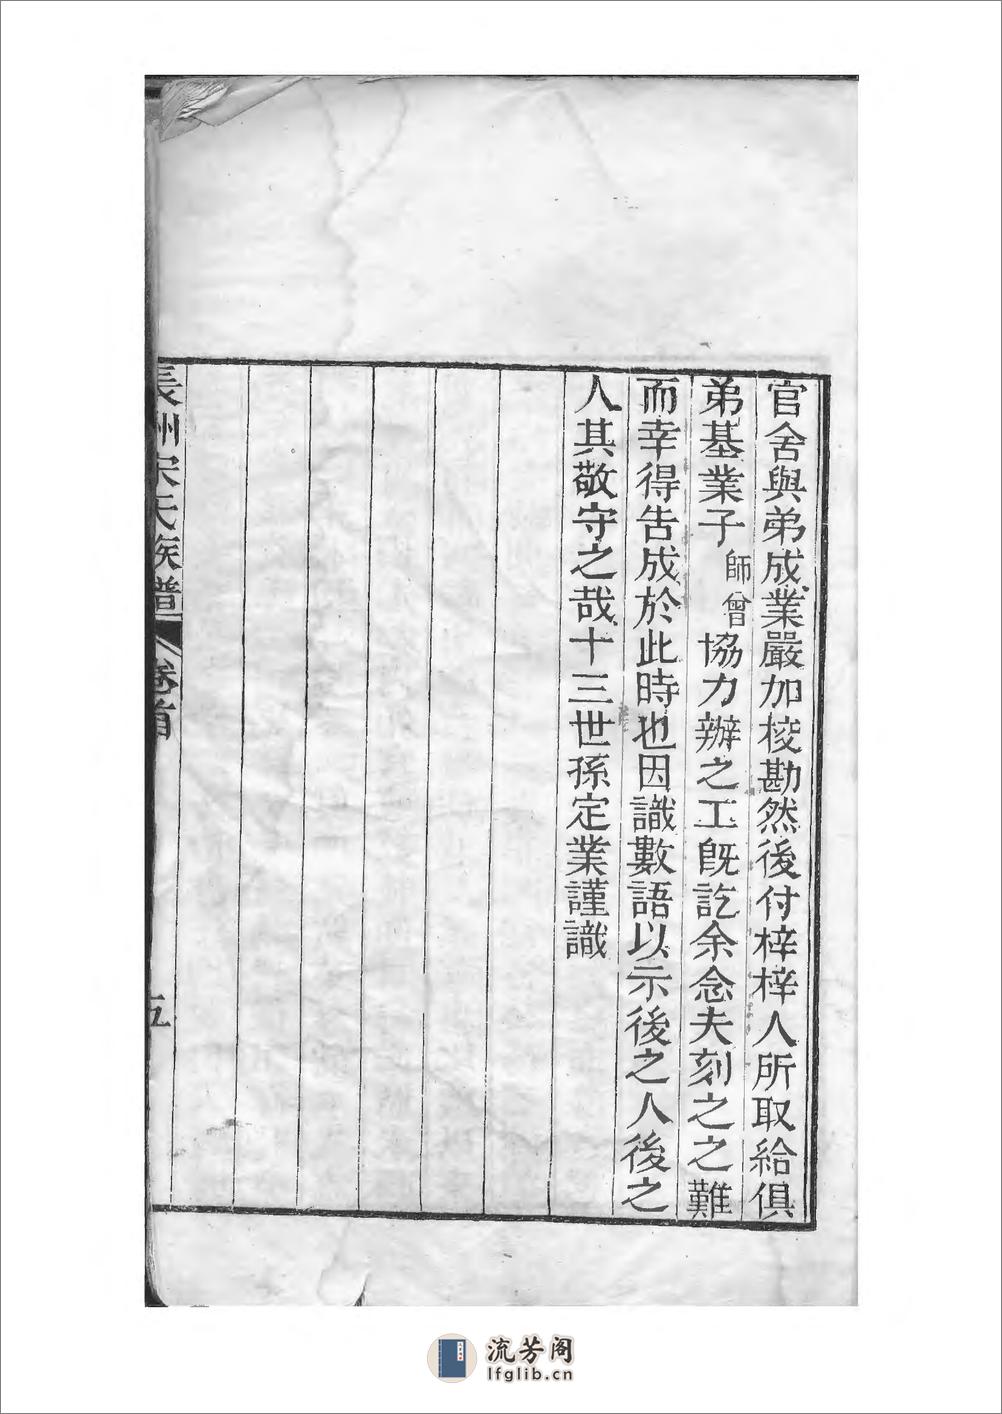 官舍與弟成業嚴加校勘然後付梓梓人所取給俱
弟基業子師曾協力辦之工旣訖余念夫刻之之難
而幸得告成於此時也因識數語以示後之人後之
人其敬守之哉十三世孫定業謹識
長洲宋氏族譜 卷首 五
流芳阁
lfglib.cn